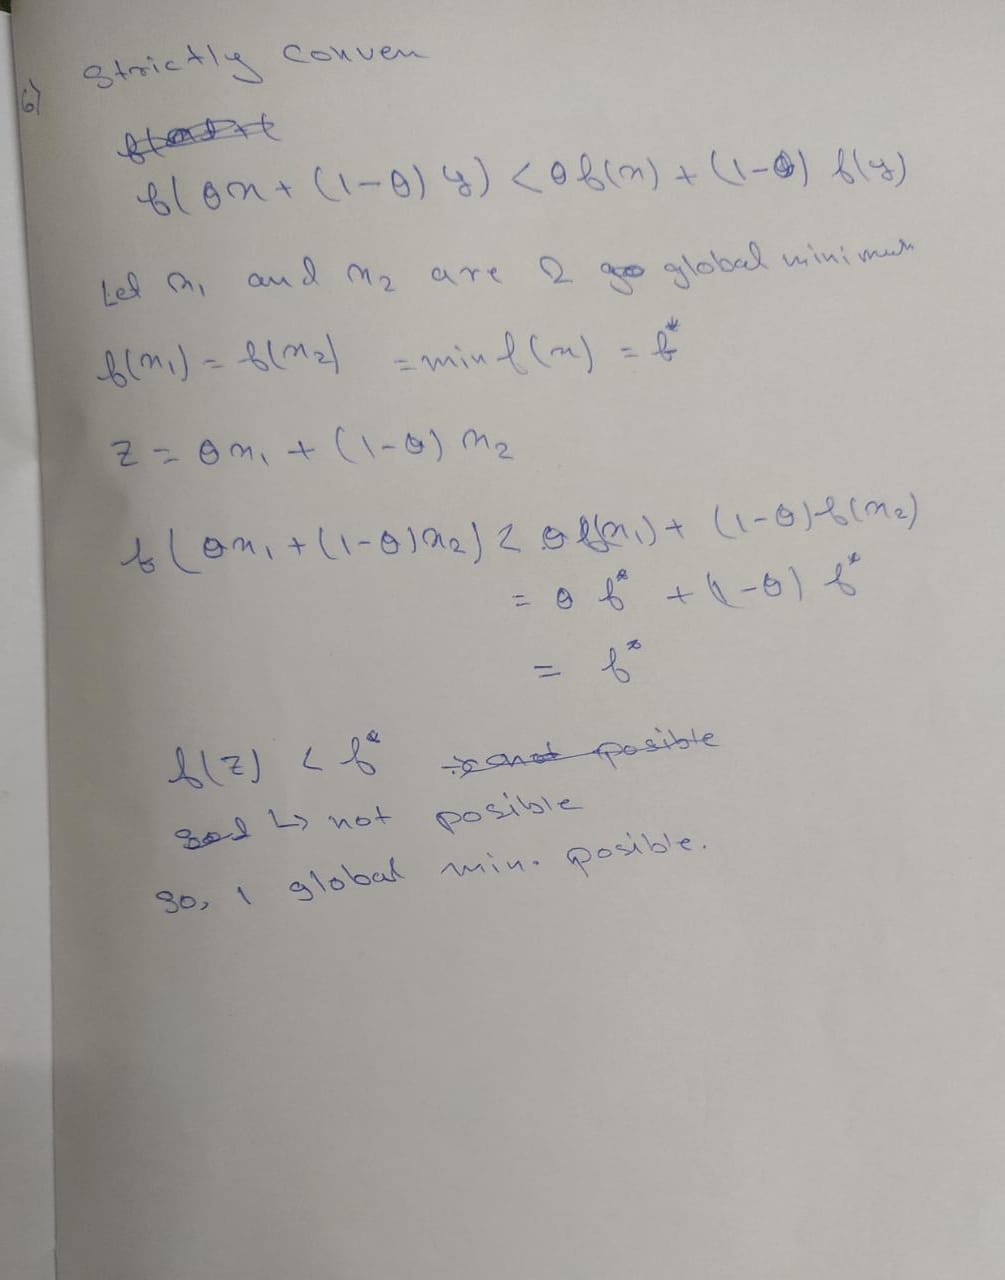 6)
Strictly Conven
f(θx + (1-θ) y) < θf(x) + (1-θ) f(y)
Let x₁ and x₂ are 2 global minimum
f(x₁) = f(x₂) = min f(x) = f*
z = θx₁ + (1-θ) x₂
f(θx₁ + (1-θ)x₂) < θf(x₁) + (1-θ)f(x₂)
= θ f* + (1-θ) f*
= f*
f(z) < f*
↳ not posible
so, 1 global min. posible.